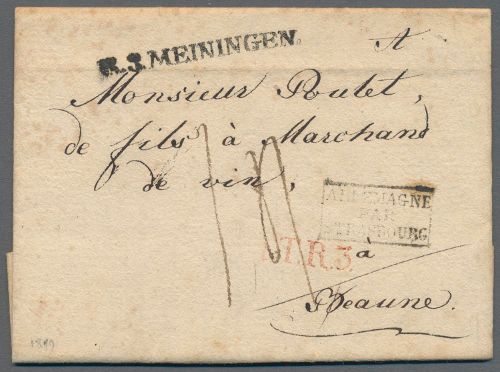 R.3.MEININGEN.
A
Monsieur Poulet,
de fils à Marchand
de vin,
ALLEMAGNE
PAR
STRASBOURG
T.R.3.
à
Beaune.